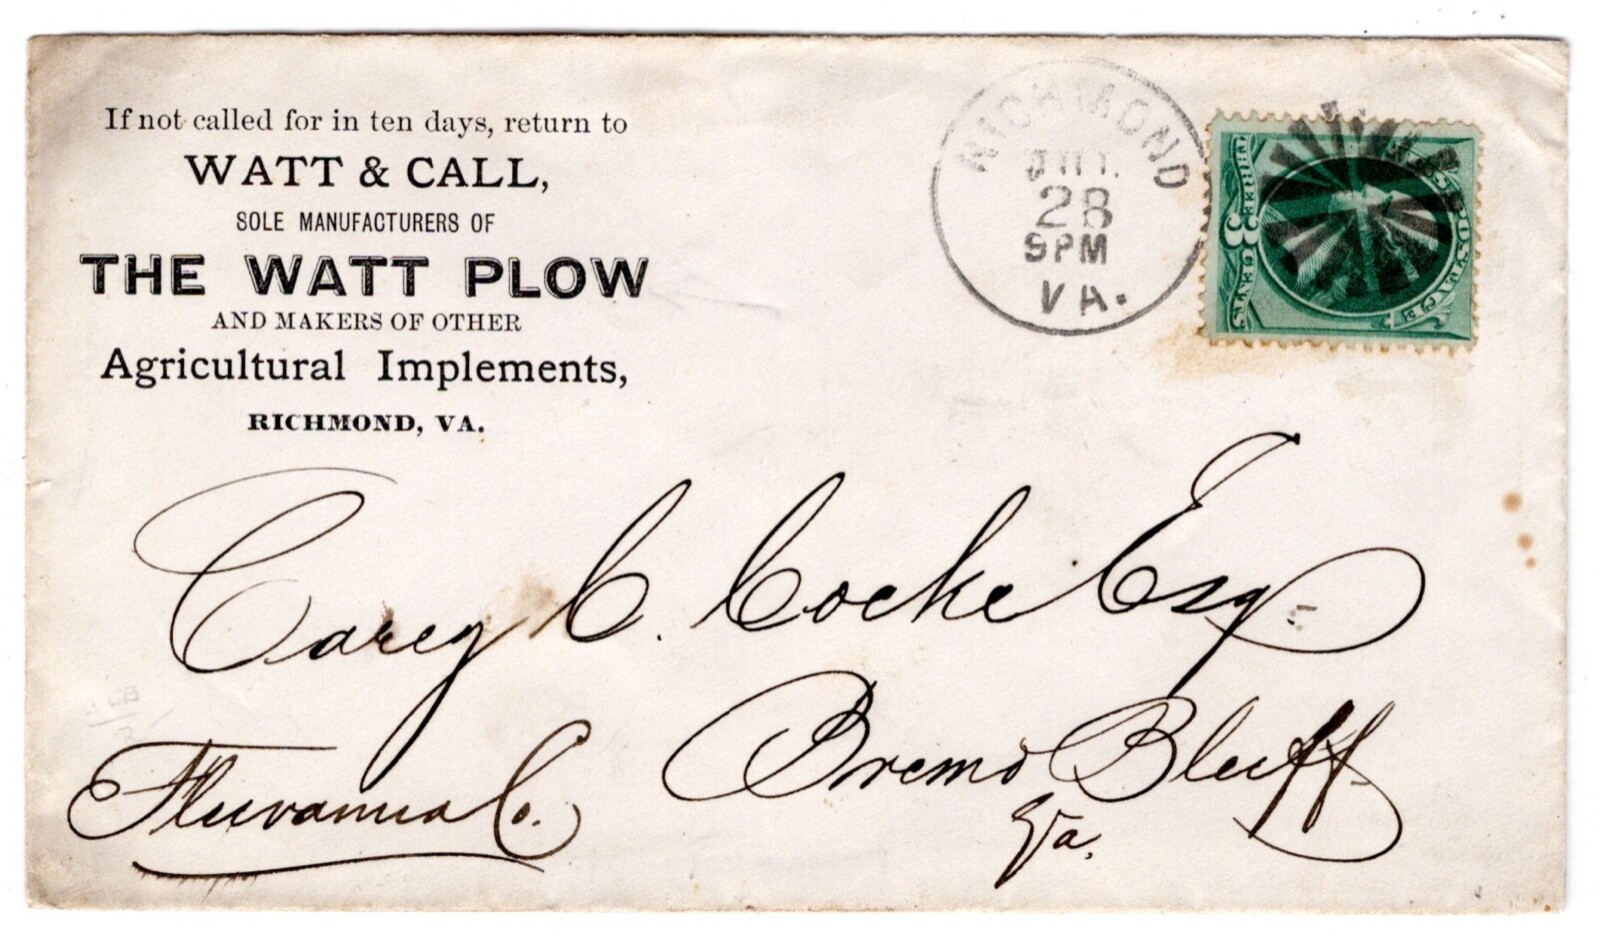 If not called for in ten days, return to
WATT & CALL,
SOLE MANUFACTURERS OF
THE WATT PLOW
AND MAKERS OF OTHER
Agricultural Implements,
RICHMOND, VA.
RICHMOND
28
9PM
VA.
3
Carey C. Cocke Esq
Bremo Bluff
Fluvanna Co.
Va.